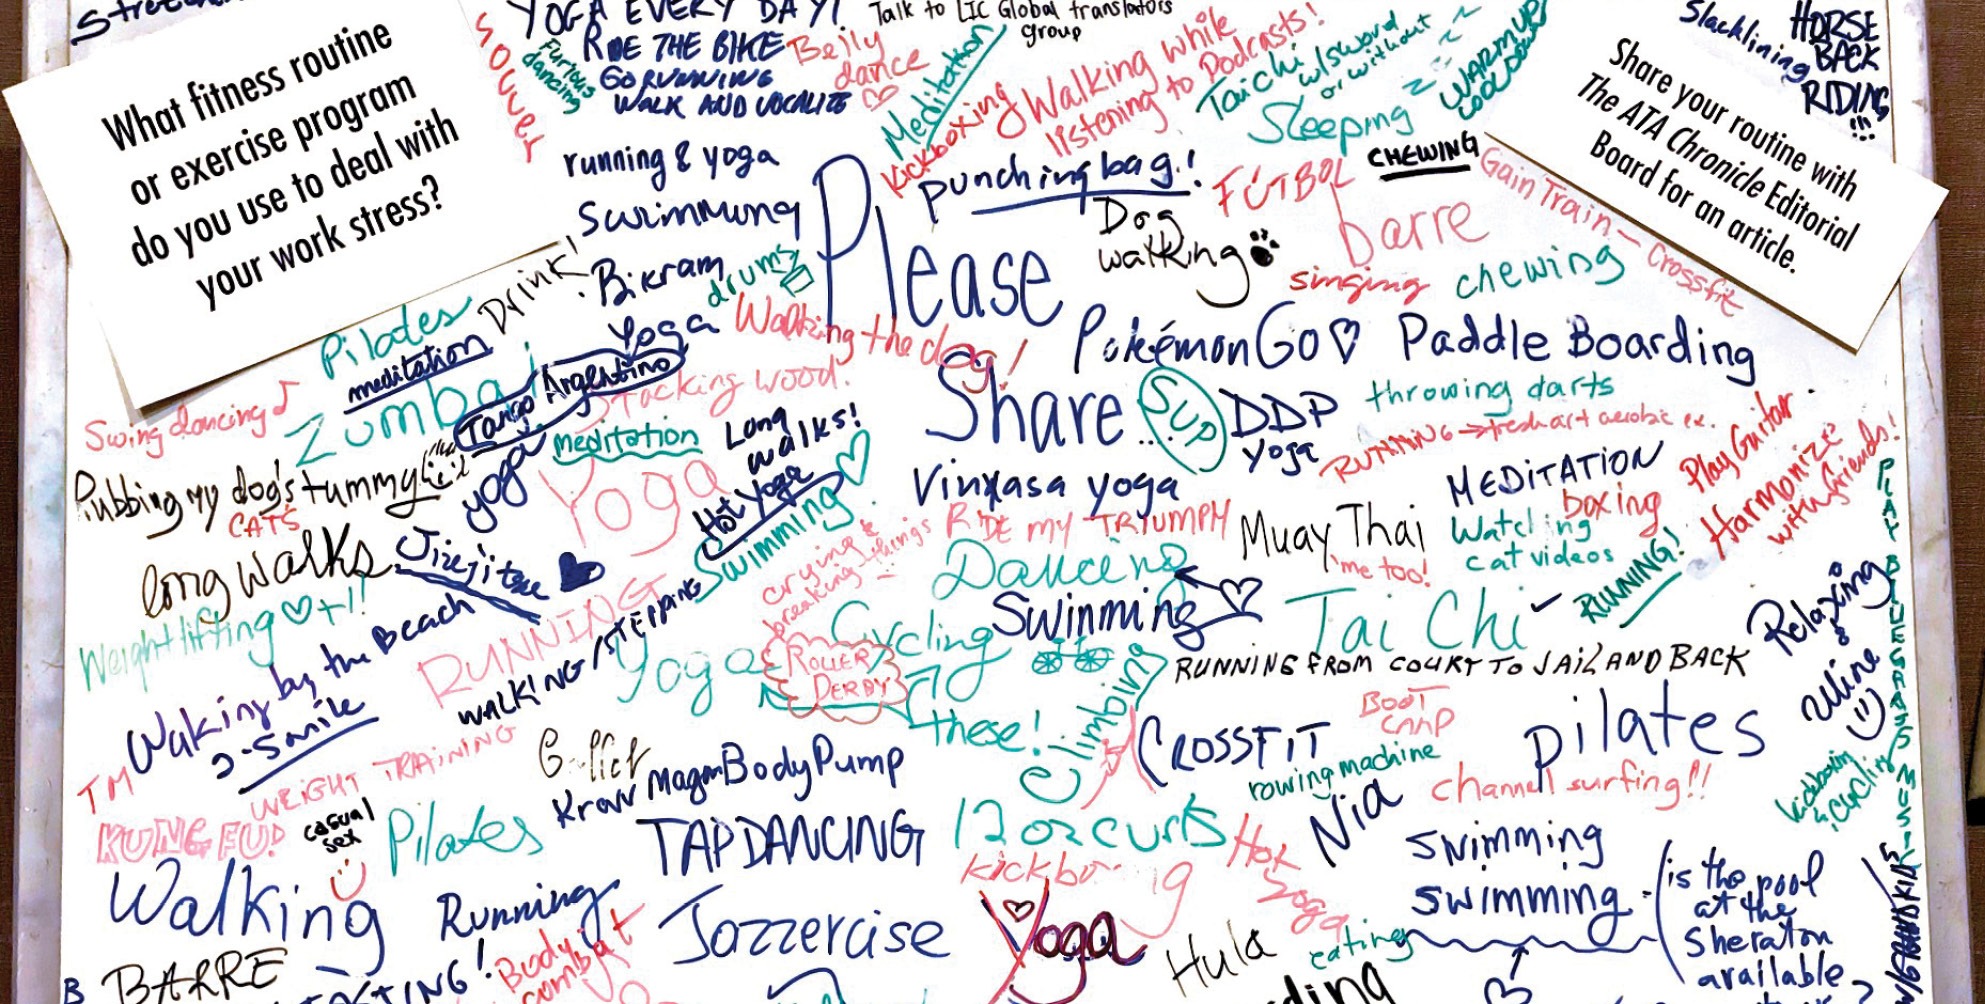 What fitness routine
or exercise program
do you use to deal with
your work stress?
YOGA EVERY DAY!
RIDE THE BIKE
GO RUNNING
WALK AND VOCALIZE
Furious
dancing
Belly
dance
Talk to LIC Global translators
group
Meditation
kickboxing
Walking while
listening to Podcasts!
Tai chi
w/sword
or without
Sleeping
WARM UP
COOL DOWN
Slacklining
HORSE
BACK
RIDING
!!!
Share your routine with
The ATA Chronicle Editorial
Board for an article.
running & yoga
Please
punching bag!
FÚTBOL
CHEWING
Gain Train - Crossfit
swimmung
Dog
walking
barre
singing
chewing
Drink!
Bikram
Yoga
drums
Walking the dog!
PokémonGo
Paddle Boarding
Pilates
meditation
Zumba!
Tango Argentino
Stacking wood.
Share...
SUP
DDP
yoga
throwing darts
Swing dancing
meditation
Long
walks!
RUNNING → fresh art aerobic ex.
Play Guitar
Harmonize
with friends!
Rubbing my dog's tummy
CATS
yoga
Yoga
Hot Yoga
Swimming
Vinyasa yoga
MEDITATION
boxing
long walks
Jiujitsu
crying &
breaking things
RIDE MY TRIUMPH
Muay Thai
me too!
Watching
cat videos
RUNNING!
Weightlifting +1!
Dancing
Swimming
Tai Chi
Relaxing
&
Wine
Walking by the Beach
2-5 mile
RUNNING
WALKING/STEPPING
Yoga
ROLLER
DERBY
Cycling
these!
Climbing
RUNNING FROM COURT TO JAIL AND BACK
PLAY BLUEGRASS MUSIC
W/GRANDKIDS
TM
WEIGHT TRAINING
Ballet
Krav Maga
BodyPump
CROSSFIT
BOOT
CAMP
rowing machine
pilates
channel surfing!!
kickboxing
cycling
KUNG FU!
casual
sex
Pilates
TAP DANCING
12 oz curls
Hot
yoga
Nia
swimming
swimming
(is the pool
at the
Sheraton
available
Walking
Running
Jazzercise
kickboxing
Yoga
Hula
eating
BARRE
Body
combat